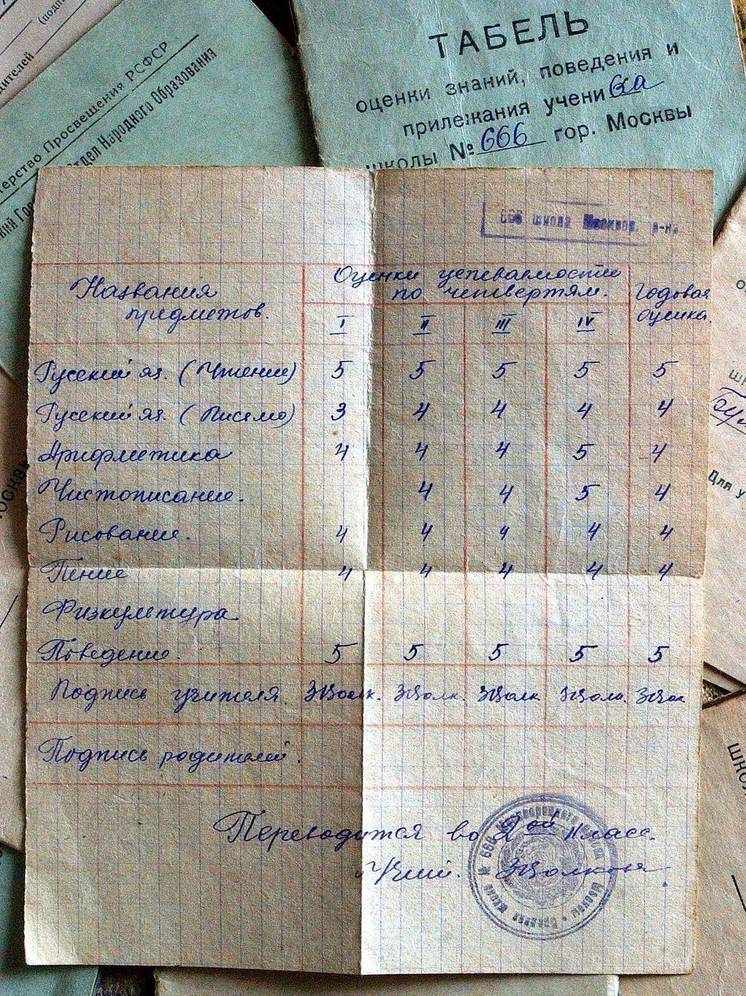 ТАБЕЛЬ
оценки знаний, поведения и
прилежания ученика
школы № 666 гор. Москвы
Просвещения РСФСР
Отдел Народного Образования
666 школа р-на
Названия предметов.
Оценки успеваемости
по четвертям.
Годовая
оценка.
I II III IV
Русский яз. (Чтение) 5 5 5 5 5
Русский яз. (Письмо) 3 4 4 4 4
Арифметика 4 4 4 5 4
Чистописание. 4 4 5 4
Рисование. 4 4 4 4 4
Пение 4 4 4 4 4
Физкультура
Поведение. 5 5 5 5 5
Подпись учителя.
Подпись родителей.
Переводится во 2ой класс.
Для у